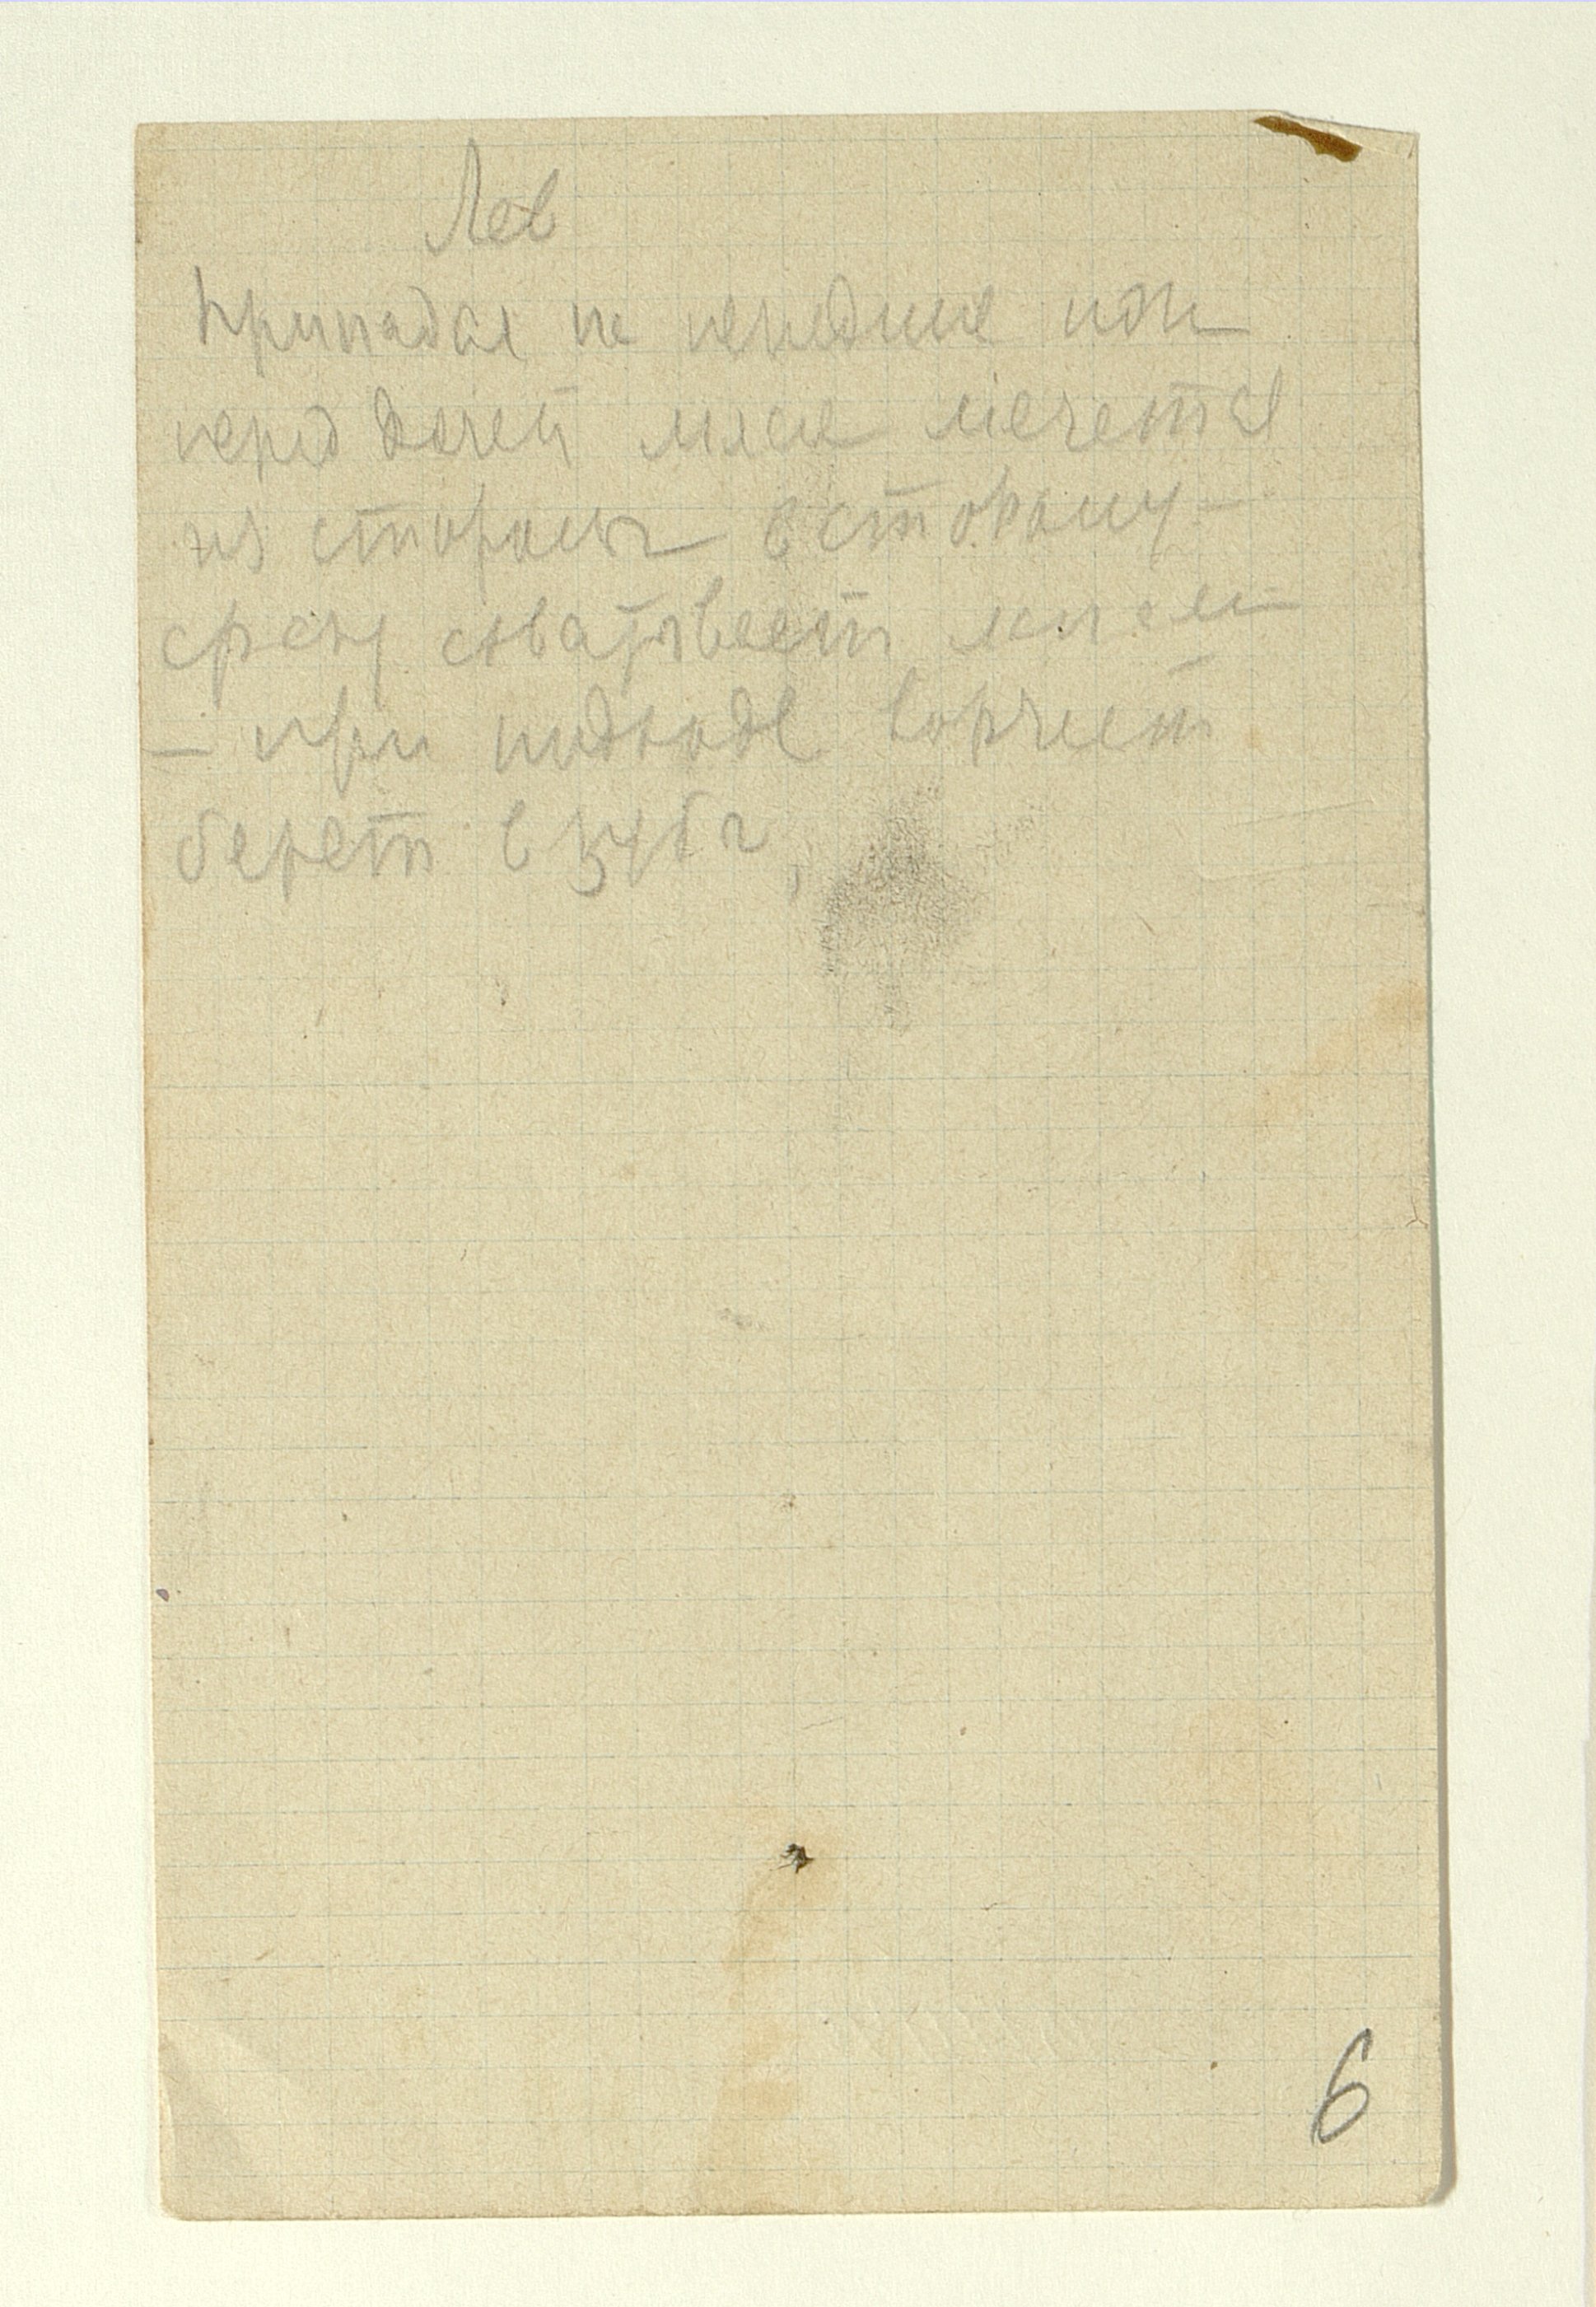 Лев
Припадая на передние ноги
перед дачей мяса мечется
из стороны в сторону –
сразу схватывает мясо
– при подходе ворчит
берет в зубы,
6